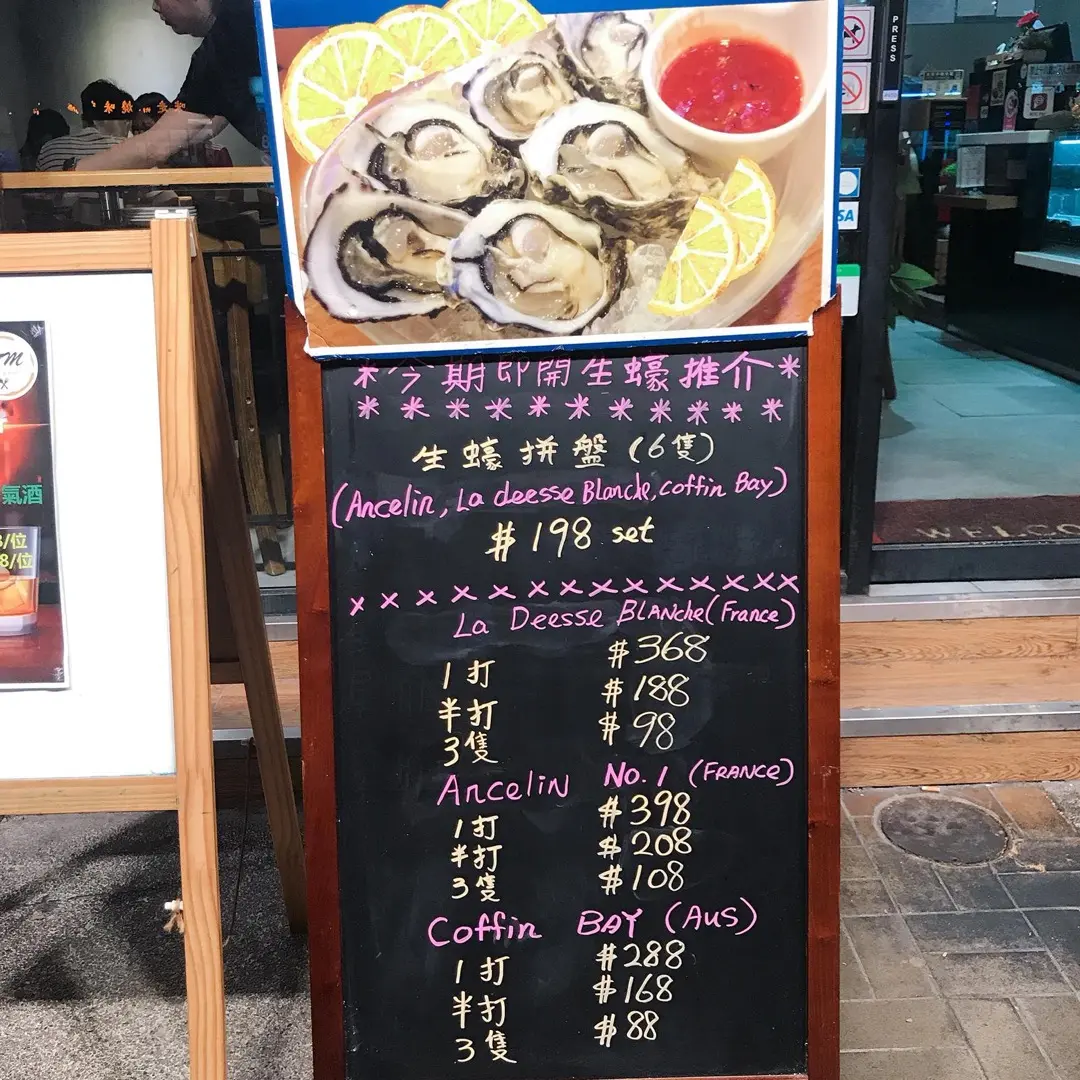 *今期即開生蠔推介*
* * * * * * * * * * *
生蠔拼盤(6隻)
(Ancelin, La deesse Blanche, coffin Bay)
$198 set
x x x x x x x x x x x x x x
La Deesse BLANche(France)
1打 $368
半打 $188
3隻 $98
Ancelin No.1 (FRANCE)
1打 $398
半打 $208
3隻 $108
Coffin BAY (AUS)
1打 $288
半打 $168
3隻 $88
氣酒
/位
8/位
PRESS
WELCO